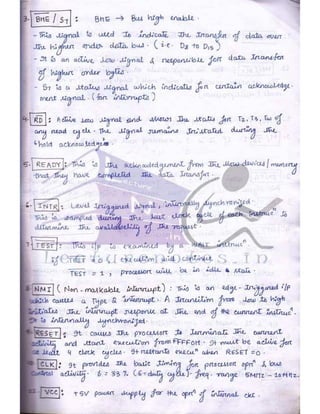 3. BHE / S7 : BHE → Bus high enable.
- This signal is used to indicate the transfer of data over
the higher order data bus. (i.e. D8 to D15)
- It is an active low signal & responsible for data transfer
of higher order bytes.
- S7 is a status signal which indicates for certain acknowledge
ment signal. (for interrupts)
4. RD : Active low signal and shows the state for T2, T3, Tw of
any read cycle. The signal remains tristated during the
'hold acknowledge'.
5. READY : This is the acknowledgement from the slow devices / memory
that they have completed the data transfer.
6. INTR : Level triggered signal, internally synchronized.
This is sampled during the last clock cycle of each instrucn to
determine the availability of the request.
7. TEST : This i/p is examined by a WAIT instrucn
If TEST = 0 ( execution will ) continue
TEST = 1, processor will be in idle state.
8. NMI ( Non-maskable interrupt ) : This is an edge-triggered i/p
which causes a Type 2 interrupt. A transition from low to high
initiates the interrupt response at the end of the current instrucn.
It is internally synchronized.
9. RESET : It causes the processor to terminate the current
activity and start execution from FFFF0H. It must be active for
at least 4 clock cycles. It restarts execun when RESET = 0.
CLK : It provides the basic timing for processor opn & bus
control activity. δ = 33 % (δ - duty cycle). freq. range 5MHz - 10MHz.
VCC : +5V power supply for the opn of internal ckt.